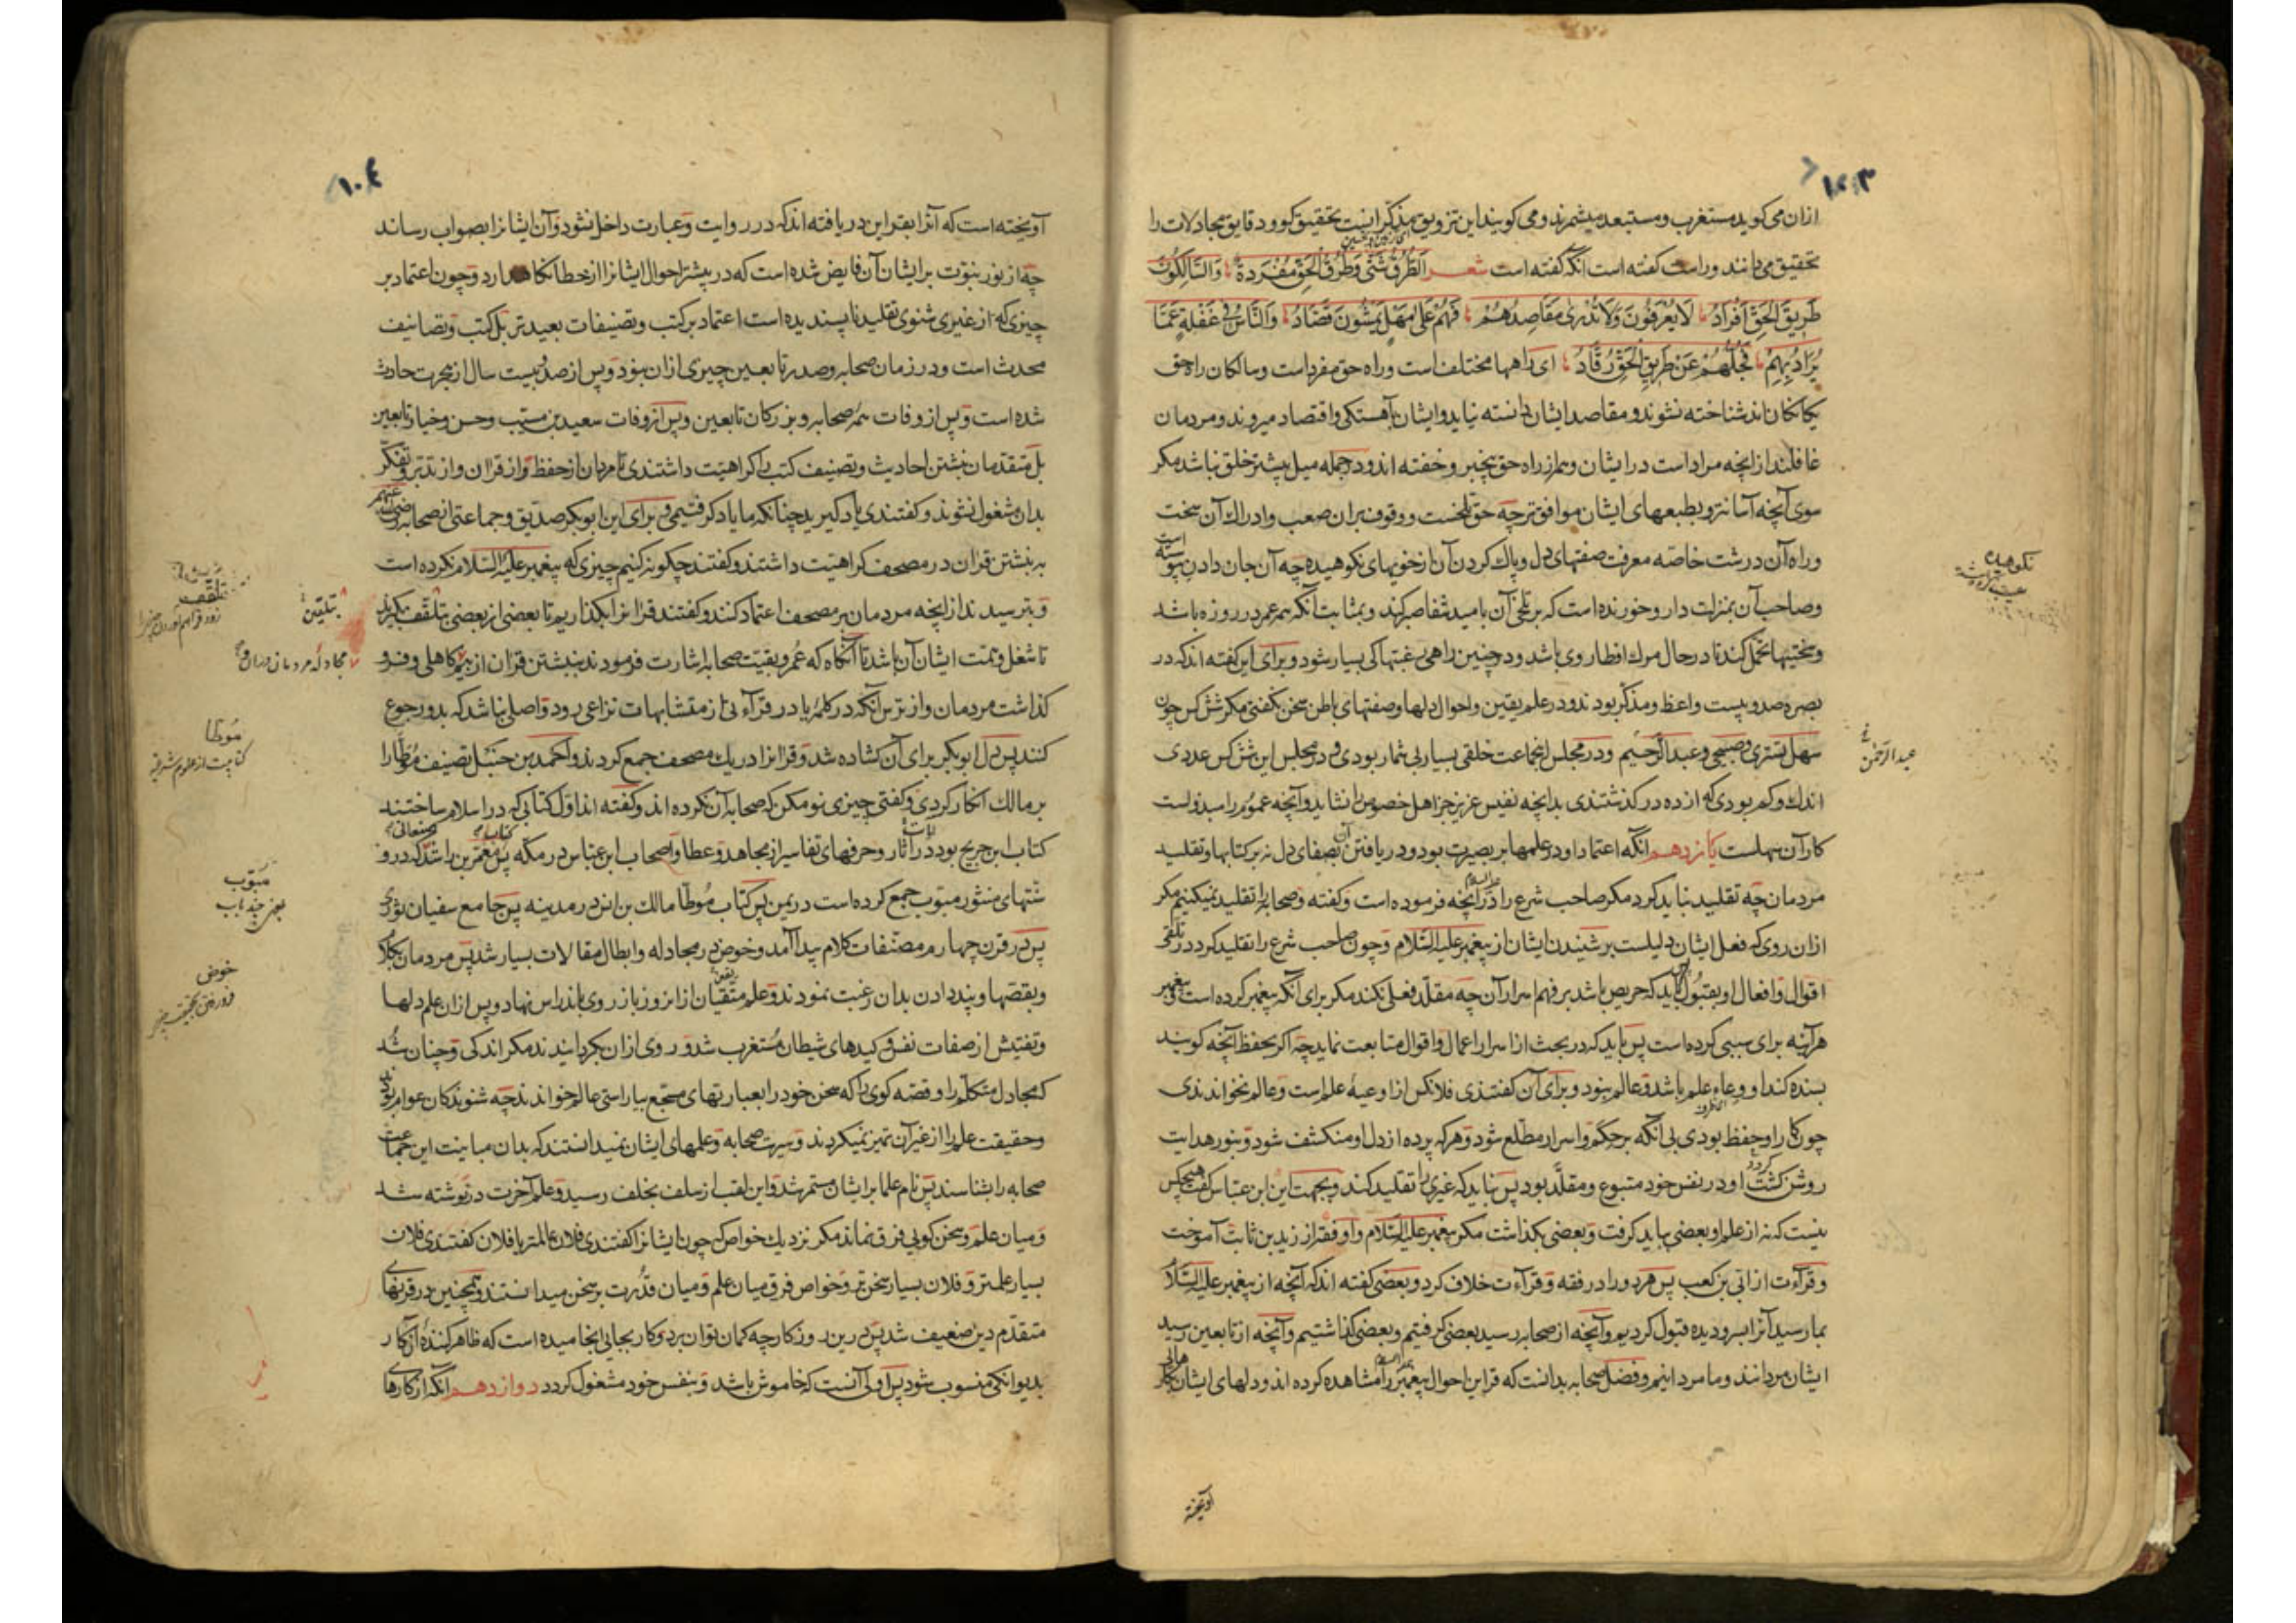 ۱۰۳
ازان می کوید مستغرب و مستبعد میشمرند و می کویند این تزویق مذکرانست تحقیق کو و دقایق مجادلات را
تحقیق می دانند و راست کفته است انکه کفته است شعر الطُّرُقُ شَتّی وَطُرُقُ الحَقِّ مُفْرَدَةٌ وَالسَّالِكُونَ
طَرِیقَ الحَقِّ اَفْرَادُ لَا یُعْرَفُونَ وَلَا تُدْرٰی مَقَاصِدُهُمْ فَهُمْ عَلٰی مَهَلٍ یَمْشُونَ قُصَّادُ وَالنَّاسُ فِی غَفْلَةٍ عَمَّا
یُرَادُ بِهِمْ فَجُلُّهُمْ عَنْ طَرِیقِ الحَقِّ رُقَّادُ ای راهها مختلف است و راه حق مفرد است و سالکان راه حق
یکانکان اند شناخته نشوند و مقاصد ایشان دانسته نیاید و ایشان بآهستکی و اقتصاد میروند و مردمان
غافلند از انچه مراد است در ایشان و هم از راه حق بیخبر و خفته اند و در جمله میل بیشتر خلق نباشد مکر
سوی آنچه آسانتر و بطبعهای ایشان موافق تر چه حق تلخست و وقوف بران صعب و ادراك آن سخت
و راه آن درشت خاصه معرفت صفتهای دل و پاك کردن آن از خویهای نکوهیده چه آن جان دادن پیوسته است
و صاحب آن بمنزلت دارو خورنده است که بر تلخی آن بامید شفا صبر کند و بمثابت آنکه همه عمر در روزه باشد
و سختیها تحمل کند تا در حال مرك افطار وی باشد و در چنین راهی رغبتها کی بسیار شود و برای این کفته اند که در
بصره صد و بیست واعظ و مذکر بودند و در علم یقین و احوال دلها و صفتهای باطن سخن نکفتی مکر شش کس چون
سهل تستری و صبیحی و عبد الرحیم و در مجلس انجماعت خلقی بسیار بی شمار بودی و در مجلس این شش کس عددی
اندك و کم بودی که از ده در کذشتندی بدانچه نفیس عزیز جز اهل خصوص را نشاید و آنچه عموم را مبذولست
کار آن سهلست یازدهم انکه اعتماد او در علمها بر بصیرت بود و دریافتن آن بصفای دل نه بر کتابها و تقلید
مردمان چه تقلید نباید کرد مکر صاحب شرع را در آنچه فرموده است و کفته و صحابه را تقلید نمیکنیم مکر
ازان روی که فعل ایشان دلیلست بر شنیدن ایشان از پیغمبر علیه السلام و چون صاحب شرع را تقلید کرد در تلقی
اقوال و افعال او بقبول باید که حریص باشد بر فهم اسرار آن چه مقلد فعلی نکند مکر برای آنکه پیغمبر کرده است و پیغمبر
هرآینه برای سببی کرده است پس باید که در بحث از اسرار اعمال و اقوال متابعت نماید چه اکر بحفظ آنچه کویند
بسنده کند او وعاء علم باشد و عالم نبود و برای آن کفتندی فلانکس از اوعیه علم است و عالم نخواندندی
چون کار او حفظ بودی بی آنکه بر حکم و اسرار مطلع شود و هر که پرده از دل او منکشف شود و بنور هدایت
روشن کشت او در نفس خود متبوع و مقلد بود پس نباید که غیری را تقلید کند و بجهت این ابن عباس کفت هیچکس
نیست که نه از علم او بعضی بباید کرفت و بعضی بکذاشت مکر پیغمبر علیه السلام و او فقه از زید بن ثابت آموخت
و قرآءت از ابی بن کعب پس هر دو را در فقه و قرآءت خلاف کرد و بعضی کفته اند که آنچه از پیغمبر علیه السلام
بما رسید آنرا بسر و دیده قبول کردیم و آنچه از صحابه رسید بعضی کرفتیم و بعضی کذاشتیم و آنچه از تابعین رسید
ایشان مردانند و ما مردانیم و فضل صحابه بدانست که قراین احوال پیغمبر را مشاهده کرده اند و دلهای ایشان
نکوهیده
عبد الرحمن
آویخته
۱۰٤
آویخته است که آنرا بقراین دریافته اند که در روایت و عبارت داخل نشود و آن ایشانرا بصواب رساند
چه از نور نبوت بر ایشان آن فایض شده است که در بیشتر احوال ایشانرا از خطا نکاه دارد و چون اعتماد بر
چیزی که از غیری شنوی تقلید ناپسندیده است اعتماد بر کتب و تصنیفات بعیدتر بل کتب و تصانیف
محدث است و در زمان صحابه و صدر تابعین چیزی ازان نبود و پس از صد و بیست سال از هجرت حادث
شده است و پس از وفات همه صحابه و بزرکان تابعین و پس از وفات سعید بن مسیب و حسن و خیار تابعین
بل متقدمان نبشتن احادیث و تصنیف کتب را کراهیت داشتندی تا مردمان از حفظ و از قران و از تدبر و تفکر
بدان مشغول نشوند و کفتندی یاد کیرید چنانکه ما یاد کرفتیمی و برای این ابوبکر صدیق و جماعتی از صحابه رضی الله عنهم
به نبشتن قران در مصحف کراهیت داشتند و کفتند چکونه کنیم چیزی که پیغمبر علیه السلام نکرده است
و بترسیدند از انچه مردمان بر مصحف اعتماد کنند و کفتند قرانرا بکذاریم تا بعضی از بعضی بتلقف بکیرند
تا شغل و همت ایشان آن باشد تا آنکاه که عمر و بقیت صحابه اشارت فرمودند بنبشتن قران از بیم کاهلی و فرو
کذاشت مردمان و از ترس آنکه در کلمه یا در قرآءتی از متشابهات نزاعی رود و اصلی نباشد که بدو رجوع
کنند پس دل ابوبکر برای آن کشاده شد و قرانرا در یك مصحف جمع کردند و احمد بن حنبل تصنیف موطا را
بر مالك انکار کردی و کفتی چیزی نو مکن که صحابه آن نکرده اند و کفته اند اول کتابی که در اسلام ساختند
کتاب ابن جریج بود در آثار و حرفهای تفاسیر از مجاهد و عطا و اصحاب ابن عباس در مکه پس معمر بن راشد که درو
سنتهای منثور مبوب جمع کرده است در یمن پس کتاب موطا مالك بن انس در مدینه پس جامع سفیان ثوری
پس در قرن چهارم مصنفات کلام پیدا آمد و خوض در مجادله و ابطال مقالات بسیار شد پس مردمان بکلام
و بقصها و پند دادن بدان رغبت نمودند و علم متقیان از انروز باز روی باندراس نهاد و پس ازان علم دلها
و تفتیش از صفات نفس و کیدهای شیطان مستغرب شد و روی ازان بکردانیدند مکر اندکی و چنان شد
که مجادل متکلم را و قصه کوی را که سخن خود را بعبارتهای مسجع بیاراستی عالم خواندند چه شنوندکان عوام بودند
و حقیقت علم را از غیر آن تمییز نمیکردند و سیرت صحابه و علمهای ایشان نمیدانستند که بدان مباینت این جماعت
صحابه را بشناسند پس نام علما بر ایشان مستمر شد و این لقب از سلف بخلف رسید و علم آخرت در نوشته شد
و میان علم و سخن کویی فرق نماند مکر نزدیك خواص که چون ایشانرا کفتندی فلان عالمتر یا فلان کفتندی فلان
بسیار علمتر و فلان بسیار سخن تر و خواص فرق میان علم و میان قدرت بر سخن میدانستند و همچنین در قرنهای
متقدم دین ضعیف شد پس درین روزکار چه کمان توان برد و کار بجایی انجامیده است که ظاهر کننده انکار
بدیوانکی منسوب شود پس اولی آنست که خاموش باشد و بنفس خود مشغول کردد دوازدهم انکه از کارهای
بتلقین
تلقف
موطا
مبوب
یعنی چند باب
خوض